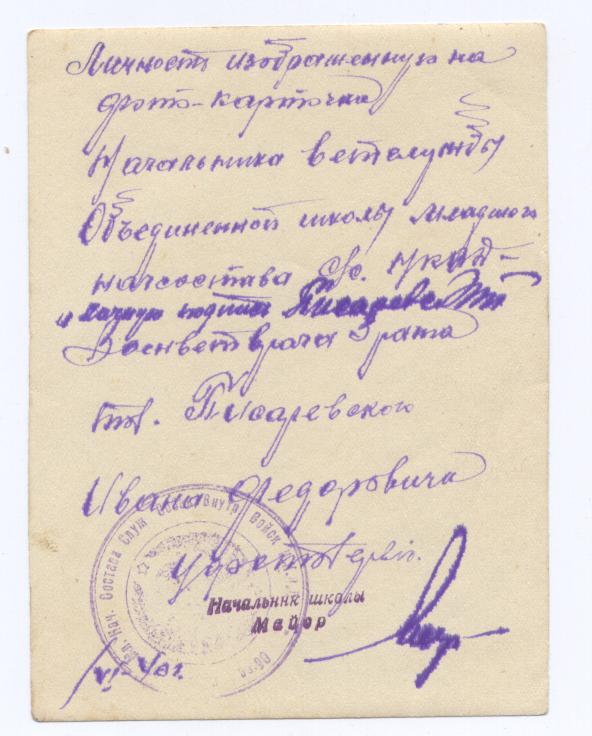 Личность изображенную на
фото-карточка
Начальника ветслужбы
Объединенной школы младшего
начсостава
и личную подпись Писаревск
Военветврача 3 ранга
тов. Писаревского
Ивана Федоровича
Нач. Состава Служ Внутр Войск
Начальник школы
Майор